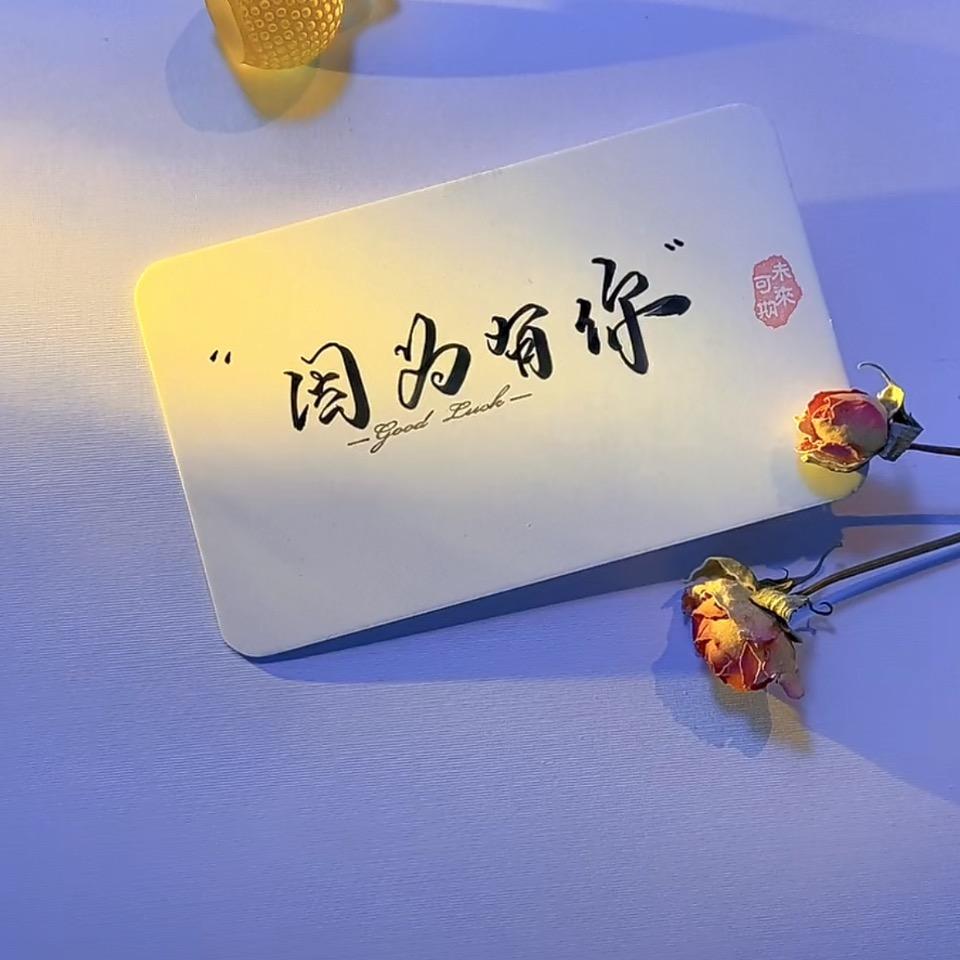 "因为有你"
—Good Luck—
未來
可期